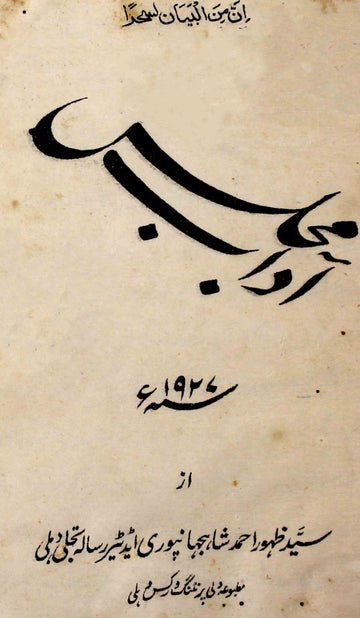 اِنَّ مِنَ الْبَيَانِ لَسِحْرًا
آداب مجلس
سنہ ۱۹۲۷ء
از
سیّد ظہور احمد شاہجہانپوری ایڈیٹر رسالہ تجلی دہلی
مطبوعہ دلی پرنٹنگ ورکس دہلی